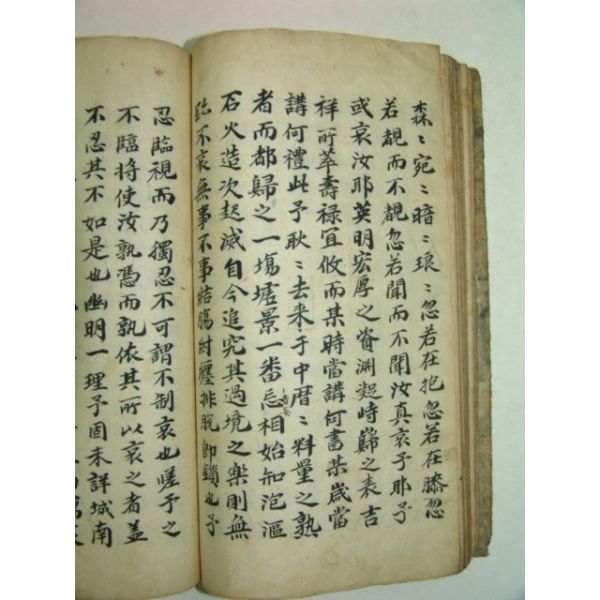 森〻宛〻暗〻琅〻忽若在抱忽若在膝忽
若覩而不覩忽若聞而不聞汝真哀予耶予
或哀汝耶英明宏厚之資渊凝時歸之表吉
祥所萃壽祿冝攸而某時當講何書某歲當
講何禮此予耿〻去来于中曆〻料量之熟
者而都歸之一塲墟景一番忘相始知泡漚
石火造次起滅自今追究其過境之樂則無
不哀無事不事結膓紂纏排脫即鎖也予
忍臨視而乃獨忍不可謂不制哀也嗟予之
不臨将使汝孰憑而孰依其所以哀之者盖
不忍其不如是也幽明一理予固未詳城南